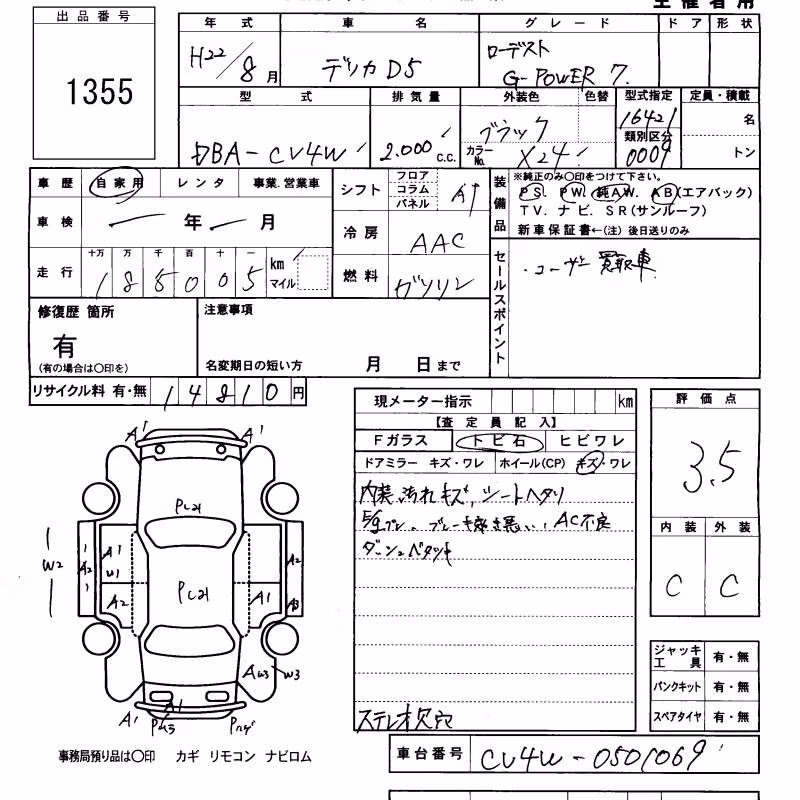 主催者用
出品番号
1355
年式 車名 グレード ドア 形状
H22/8月 デリカD5 ローデスト
G-POWER 7.
型式 排気量 外装色 色替 型式指定 定員・積載
DBA-CV4W 2.000 c.c. ブラック カラーNo. X24 16421 類別区分 0009 名 トン
車歴 自家用 レンタ 事業.営業車
車検 年 月
走行 十万 万 千 百 十 一
185005 km マイル
シフト フロア コラム パネル AT
冷房 AAC
燃料 ガソリン
装備品 ※純正のみ〇印をつけて下さい。
PS. PW. 純AW. AB(エアバッグ)
TV. ナビ. SR(サンルーフ)
新車保証書←(注) 後日送りのみ
セールスポイント
・ユーザー買取車
修復歴 箇所
有
(有の場合は〇印を)
注意事項
名変期日の短い方 月 日まで
リサイクル料 有・無 14810円
現メーター指示 km
【査定員記入】
Fガラス トビ石 ヒビワレ
ドアミラー キズ・ワレ ホイール(CP) キズ・ワレ
内装汚れキズ,シートヘタリ
AC不良
ステレオ欠穴
評価点
3.5
内装 外装
C C
ジャッキ 工具 有・無
パンクキット 有・無
スペアタイヤ 有・無
A1 A1
W2 A2 A1 W1 A2 A1 A2
AW3 W3
A1 A1
事務局預り品は〇印 カギ リモコン ナビロム
車台番号 CV4W-0501069